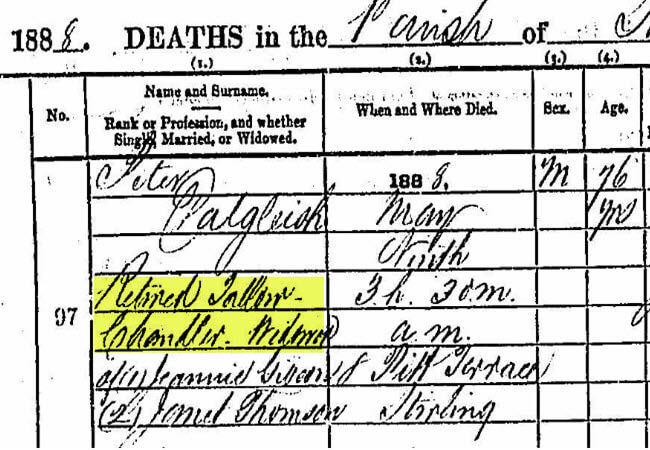 1888. DEATHS in the Parish of
(1.) (2.) (3.) (4.)
No. Name and Surname. When and Where Died. Sex. Age.
Rank or Profession, and whether
Single, Married, or Widowed.
Peter 1888. M 76
Dalgleish May yrs
Ninth
97 Retired Tallow- 3 h. 30 m.
Chandler. Widower a.m.
of (1) Jeannie 8 Pitt Terrace
(2) Janet Thomson Stirling